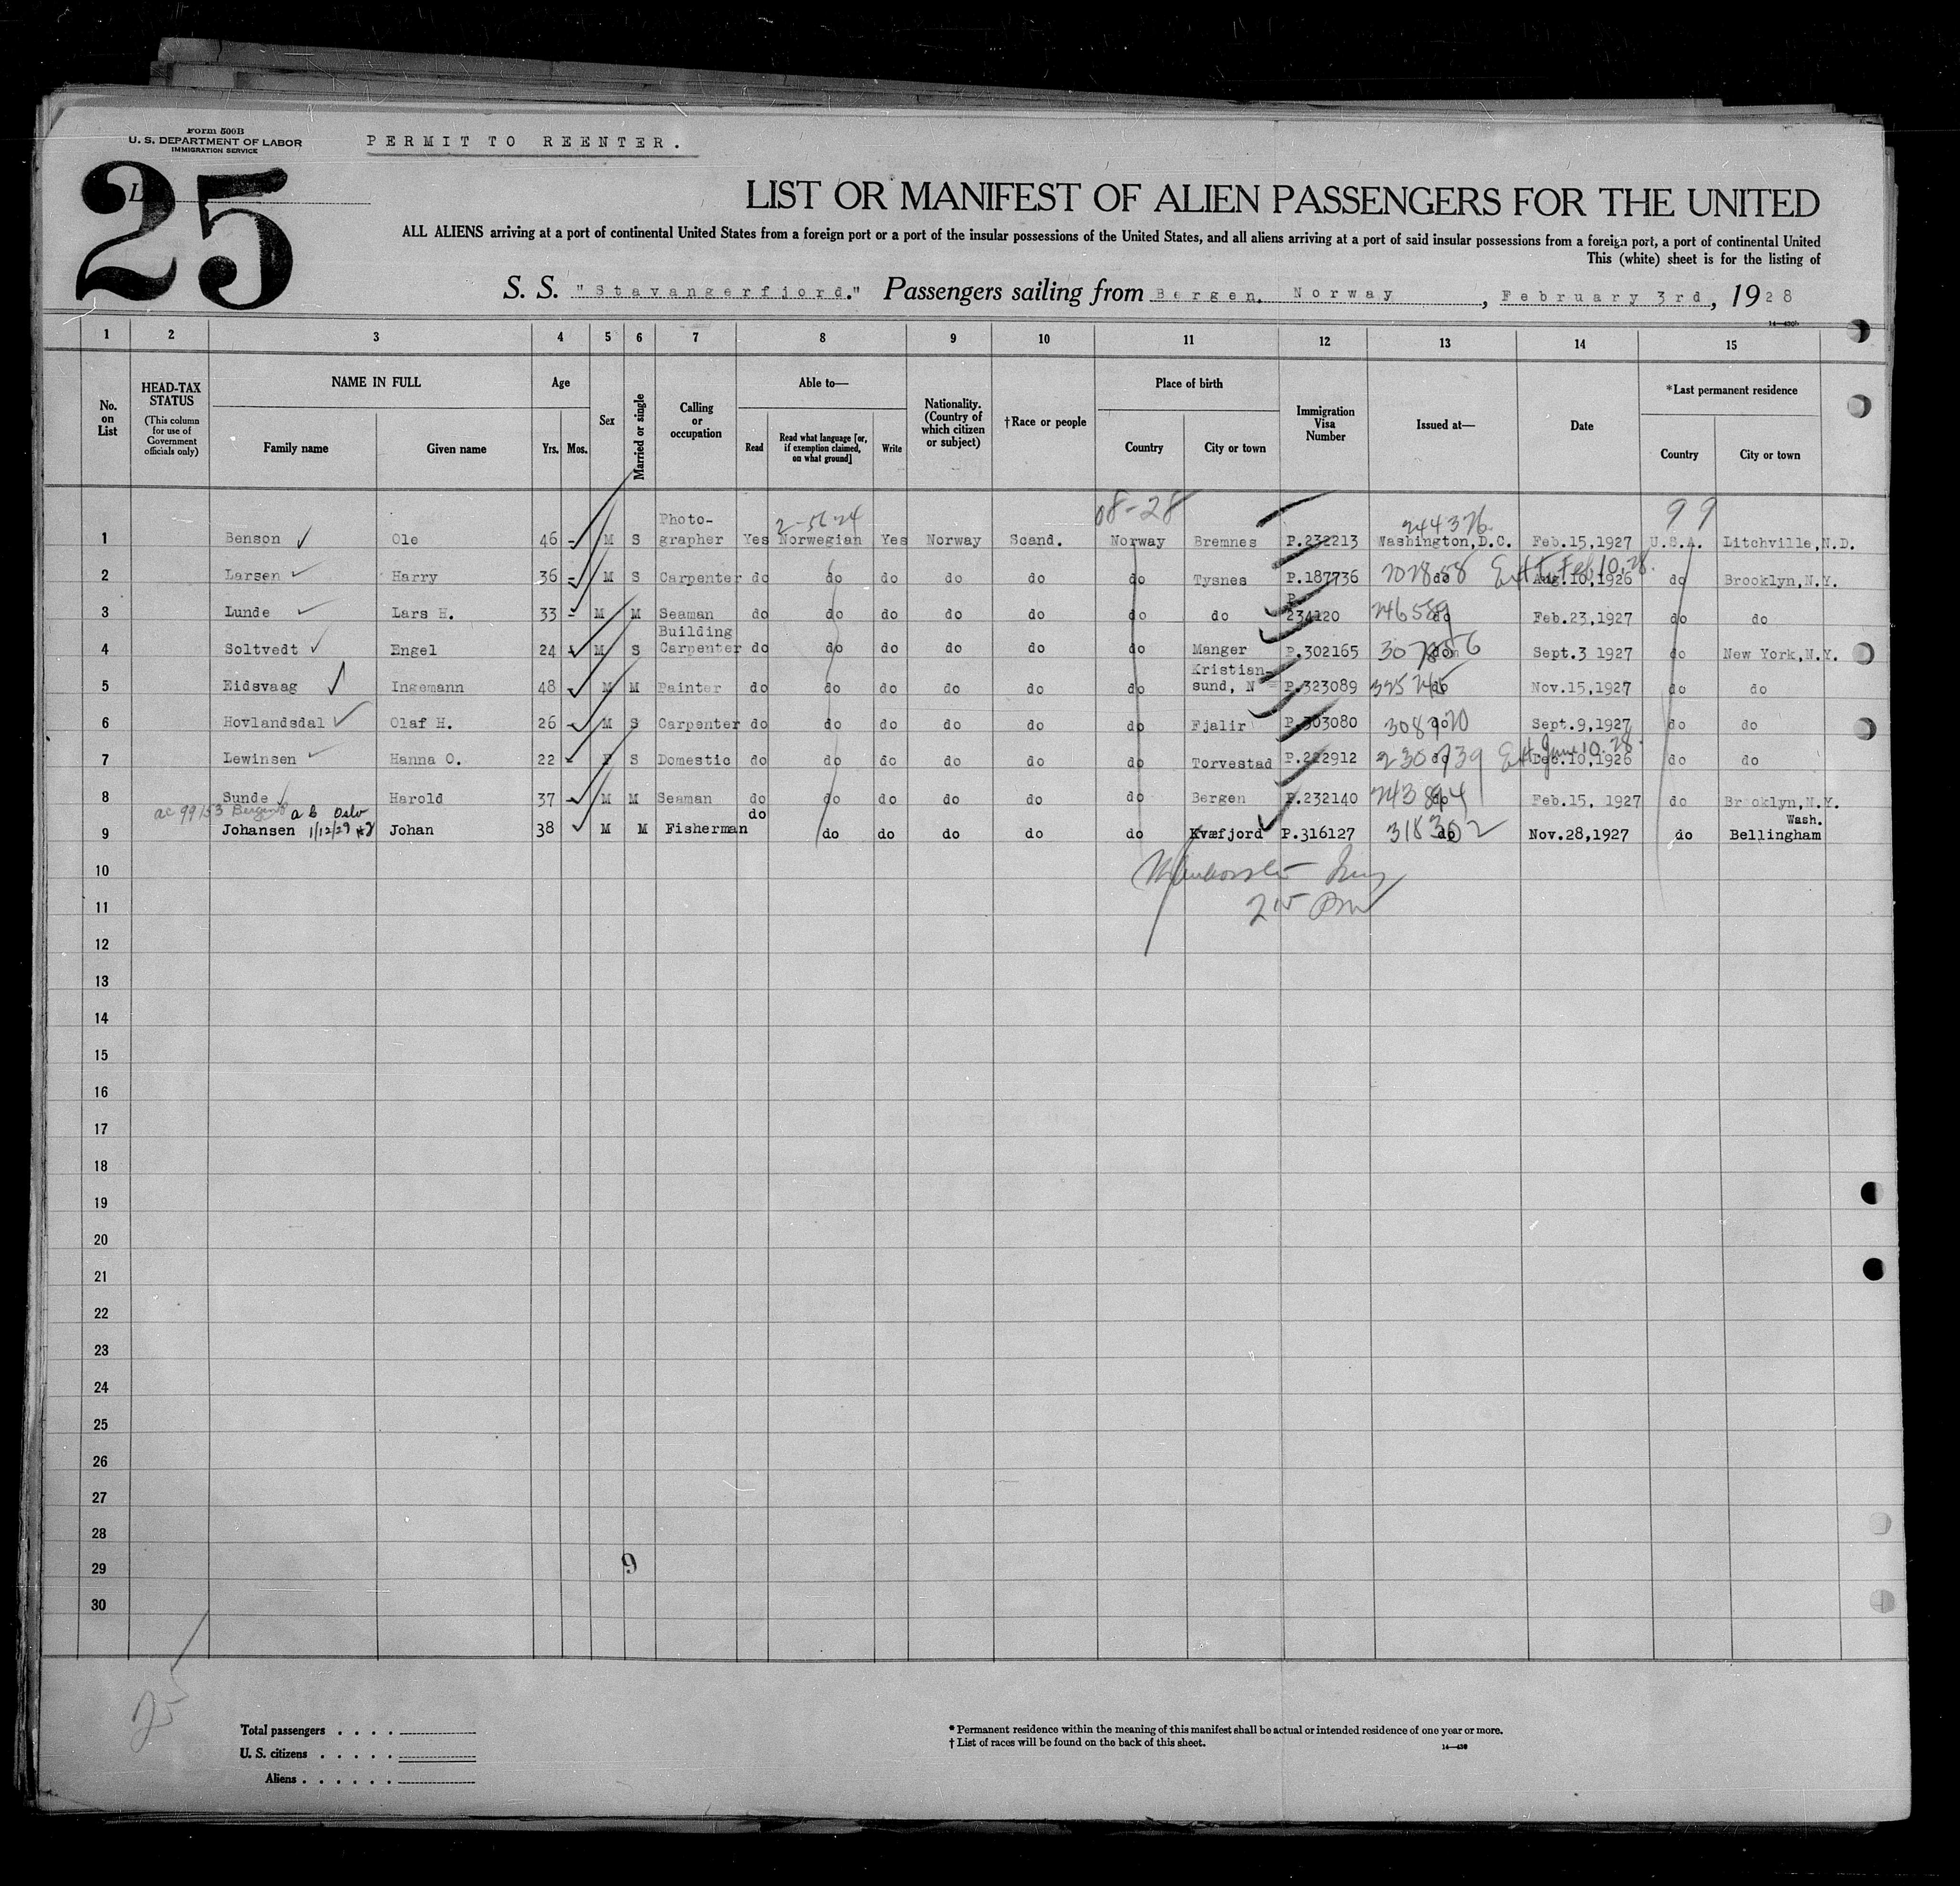 Form 500B
U. S. DEPARTMENT OF LABOR
IMMIGRATION SERVICE
PERMIT TO REENTER.
25
LIST OR MANIFEST OF ALIEN PASSENGERS FOR THE UNITED
ALL ALIENS arriving at a port of continental United States from a foreign port or a port of the insular possessions of the United States, and all aliens arriving at a port of said insular possessions from a foreign port, a port of continental United
This (white) sheet is for the listing of
S. S. "Stavangerfjord." Passengers sailing from Bergen, Norway, February 3rd, 1928
1 2 3 4 5 6 7 8 9 10 11 12 13 14 15
No. on List
HEAD-TAX STATUS (This column for use of Government officials only)
NAME IN FULL Family name Given name
Age Yrs. Mos.
Sex
Married or single
Calling or occupation
Able to— Read Read what language [or, if exemption claimed, on what ground] Write
Nationality. (Country of which citizen or subject)
†Race or people
Place of birth Country City or town
Immigration Visa Number
Issued at—
Date
*Last permanent residence Country City or town
08-28 99
2-5624 244376
1 Benson Ole 46 - M S Photo-grapher Yes Norwegian Yes Norway Scand. Norway Bremnes P.232213 Washington,D.C. Feb.15,1927 U.S.A. Litchville,N.D.
2 Larsen Harry 36 - M S Carpenter do do do do do do Tysnes P.187736 do 202858 Aug.10,1926 Ext. Feb 10.28. do Brooklyn,N.Y.
3 Lunde Lars H. 33 - M M Seaman do do do do do do do P. 234120 do 246589 Feb.23,1927 do do
4 Soltvedt Engel 24 - M S Building Carpenter do do do do do do Manger P.302165 do Sept.3 1927 do New York,N.Y.
5 Eidsvaag Ingemann 48 M M Painter do do do do do do Kristian-sund, N P.323089 do Nov.15,1927 do do
6 Hovlandsdal Olaf H. 26 - M S Carpenter do do do do do do Fjalir P.303080 do Sept.9,1927 do do
7 Lewinsen Hanna O. 22 - F S Domestic do do do do do do Torvestad P.222912 do 230739 Dec.10,1926 Ext. June 10.28. do do
8 Sunde Harold 37 - M M Seaman do do do do do do Bergen P.232140 do 243894 Feb.15, 1927 do Brooklyn,N.Y.
ac 99153 Bergen a b Oslo 1/12/29
9 Johansen Johan 38 M M Fisherman do do do do do do Kvæfjord P.316127 do 318302 Nov.28,1927 do Bellingham Wash.
10
215 PM
11
12
13
14
15
16
17
18
19
20
21
22
23
24
25
26
27
28
29
9
30
25
Total passengers
U. S. citizens
Aliens
* Permanent residence within the meaning of this manifest shall be actual or intended residence of one year or more.
† List of races will be found on the back of this sheet.
14—430